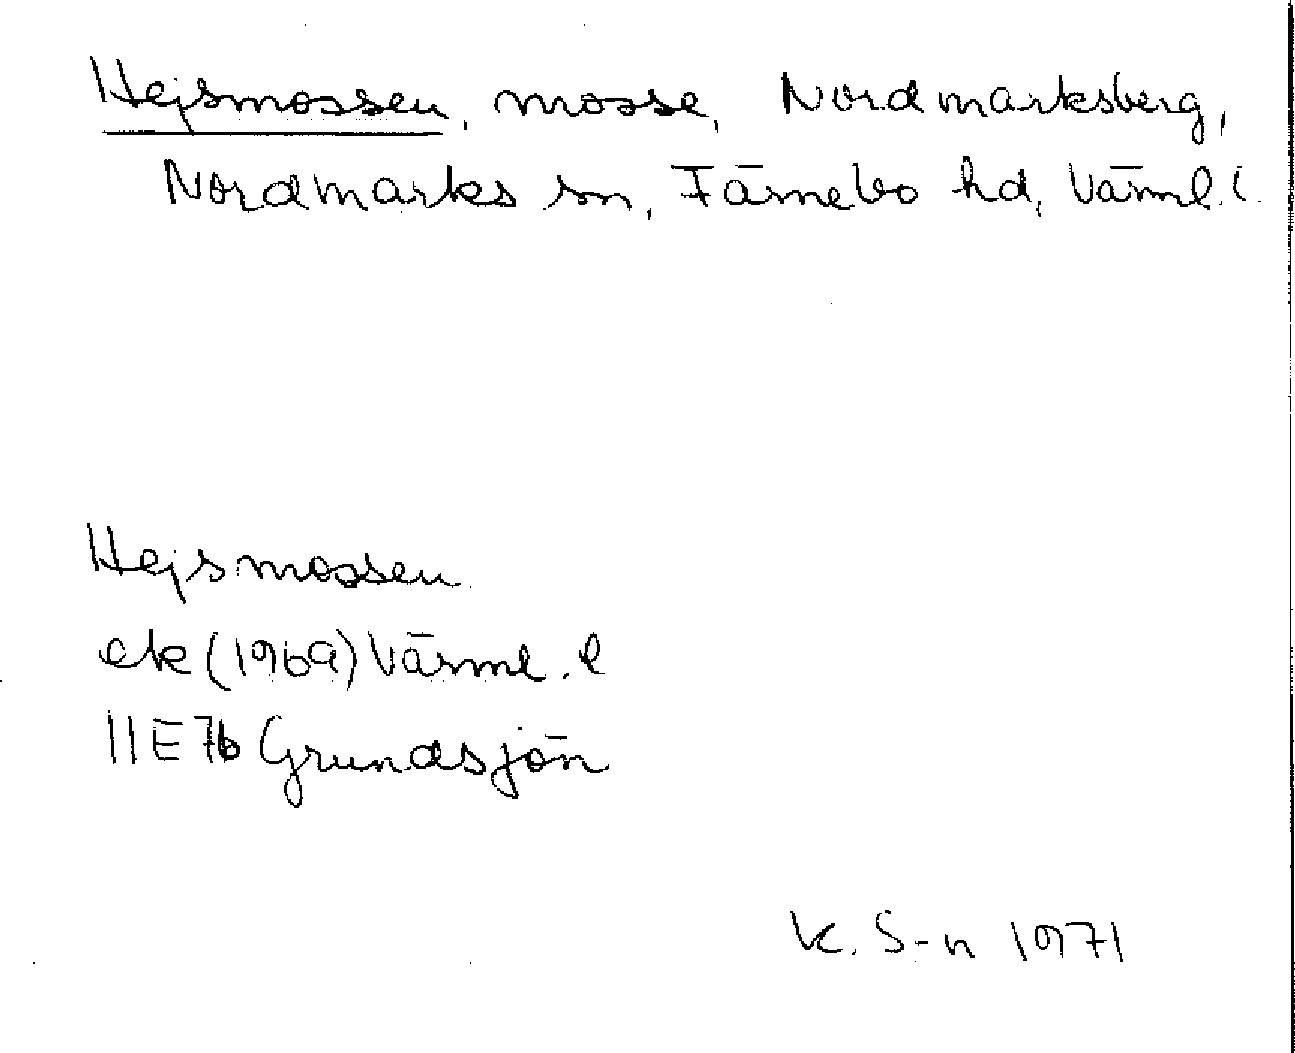 Hejsmossen, mosse, Nordmarksberg,
Nordmarks sn, Färnebo hd, Värml. l.
Hejsmossen
ek (1969) Värml. l
11E 7b Grundsjön
K. S-n 1971